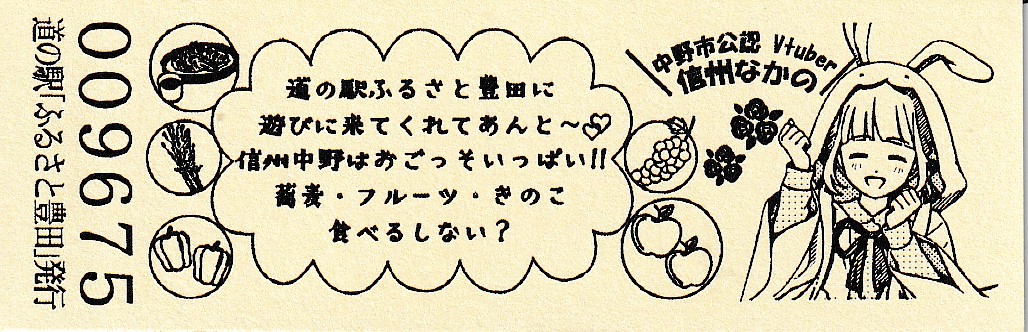 009675
道の駅「ふるさと豊田」発行
道の駅ふるさと豊田に
遊びに来てくれてあんと〜♡
信州中野はおごっそいっぱい!!
蕎麦・フルーツ・きのこ
食べるしない?
中野市公認 Vtuber
信州なかの